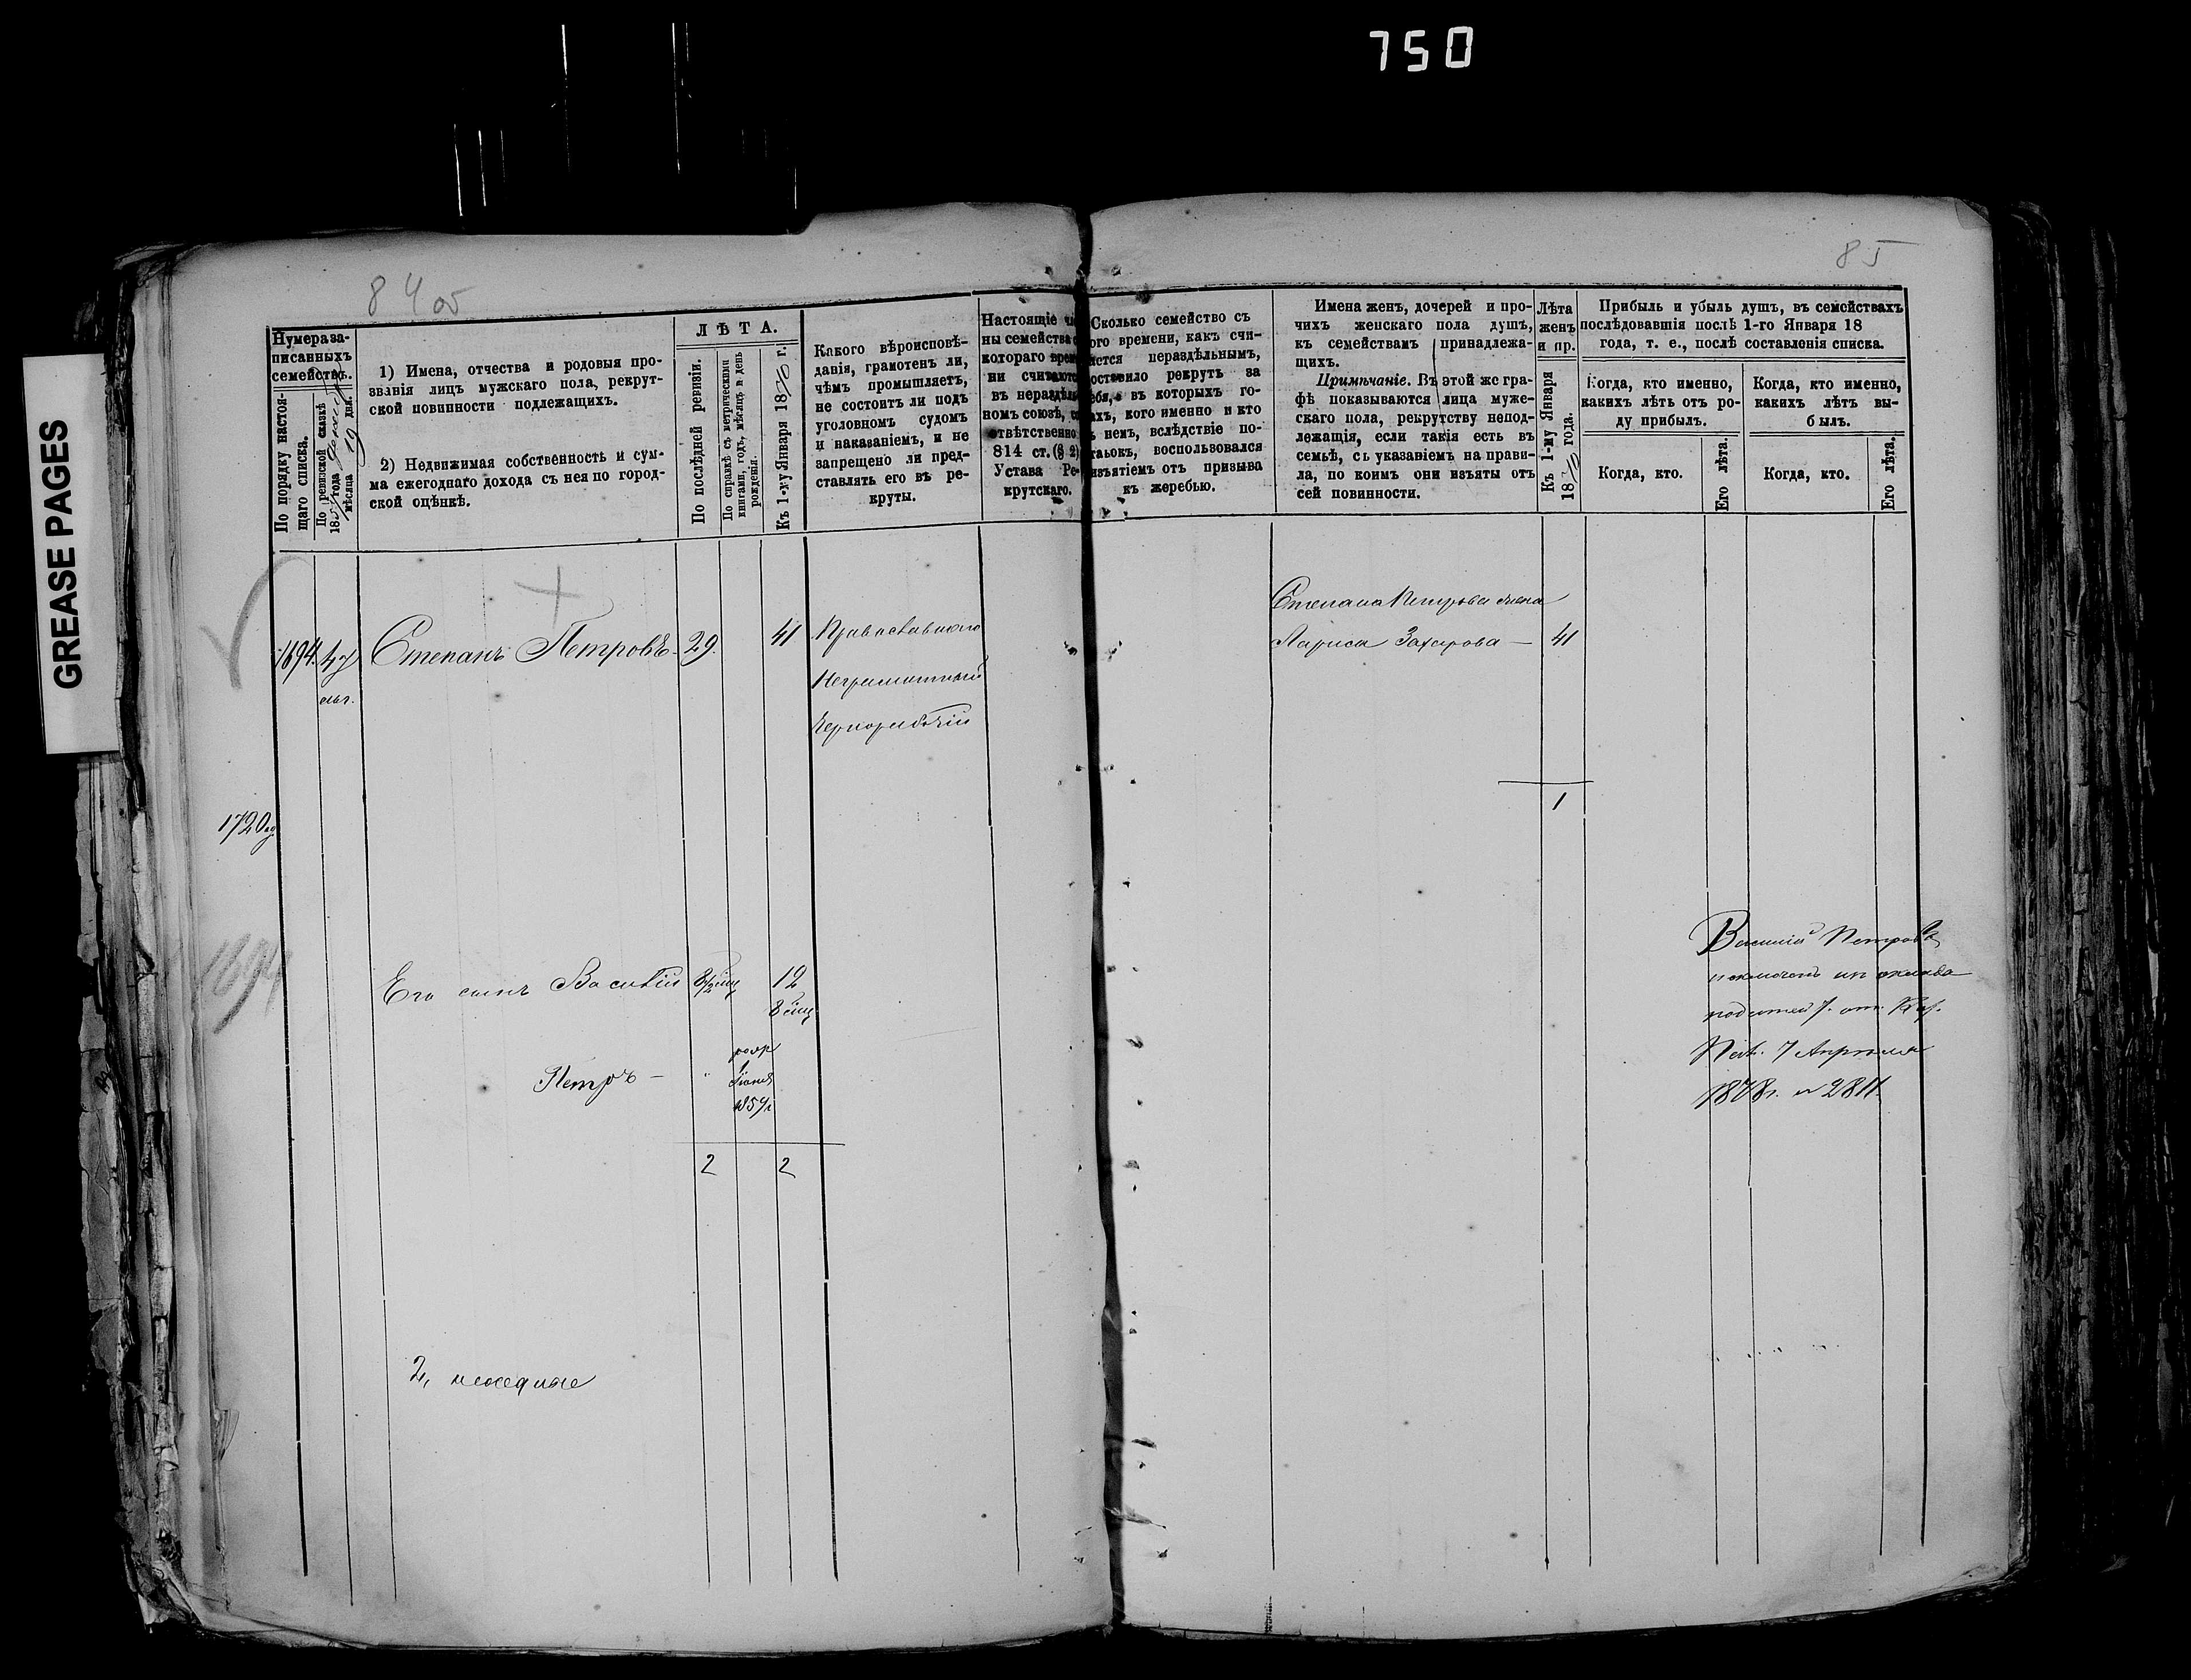 750
GREASE PAGES
84 об
85
Нумера за-
писанныхъ
семействъ.
По порядку настоя-
щаго списка.
По ревизской сказкѣ
года
мѣсяца 19 дня.
1) Имена, отчества и родовыя про-
званія лицъ мужскаго пола, рекрут-
ской повинности подлежащихъ.
2) Недвижимая собственность и сум-
ма ежегоднаго дохода съ нея по город-
ской оцѣнкѣ.
ЛѢТА.
По послѣдней ревизіи.
По справкѣ съ метрическими
книгами, годъ, мѣсяцъ и день
рожденія.
Къ 1-му Января 1870 г.
Какого вѣроисповѣ-
данія, грамотенъ ли,
чѣмъ промышляетъ,
не состоитъ ли подъ
уголовномъ судомъ
и наказаніемъ, и не
запрещено ли пред-
ставлять его въ ре-
круты.
Настоящіе
ны семейства
котораго
ни считаютс
въ нераздѣль
номъ союзѣ,
отвѣтственно
814 ст. (§ 2)
Устава Ре-
крутскаго.
Сколько семейство съ
ого времени, какъ счи-
ается нераздѣльнымъ,
оставило рекрутъ за
ебя, въ которыхъ го-
ахъ, кого именно и кто
немъ, вслѣдствіе по-
воспользовался
изъятіемъ отъ призыва
къ жеребью.
Имена женъ, дочерей и про-
чихъ женскаго пола душъ,
къ семействамъ принадлежа-
щихъ.
Примѣчаніе. Въ этой же гра-
фѣ показываются лица муже-
скаго пола, рекрутству непод-
лежащія, если такія есть въ
семьѣ, съ указаніемъ на прави-
ла, по коимъ они изъяты отъ
сей повинности.
Лѣта
женъ
и пр.
Къ 1-му Января
1870 года.
Прибыль и убыль душъ, въ семействахъ
послѣдовавшія послѣ 1-го Января 18
года, т. е., послѣ составленія списка.
Когда, кто именно,
какихъ лѣтъ отъ ро-
ду прибылъ.
Когда, кто.
Его лѣта.
Когда, кто именно,
какихъ лѣтъ вы-
былъ.
Когда, кто.
Его лѣта.
1894. 47 Степанъ Петровъ 29. 41 Православнаго
Неграмотный
Чернорабочій
Степана Петрова жена
Лариса Захарова — 41
1
1720
1894
Его сынъ Василій 12
Петръ —
1
1859
2 2
2,
Василій Петровъ
исключенъ изъ оклада
Пал. 7 Апрѣля
1878г. № 2811.